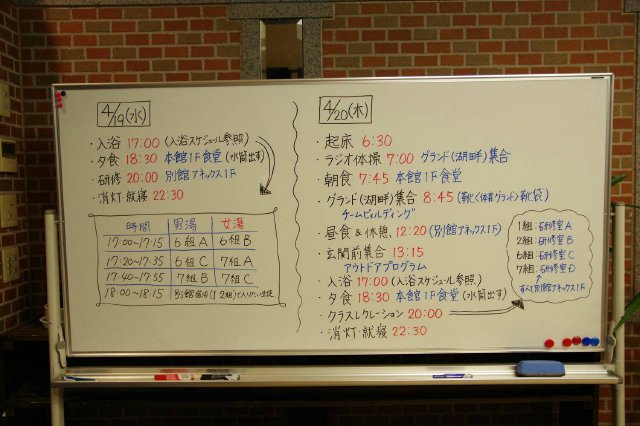 4/19(水)
・入浴 17:00 (入浴スケジュール参照)
・夕食 18:30 本館1F食堂 (水筒出す)
・研修 20:00 別館アネックス1F
・消灯・就寝 22:30
時間 男湯 女湯
17:00~17:15 6組A 6組B
17:20~17:35 6組C 7組A
17:40~17:55 7組B 7組C
18:00~18:15 別館宿泊(1・2組)で入りたい生徒
4/20(木)
・起床 6:30
・ラジオ体操 7:00 グランド(湖畔)集合
・朝食 7:45 本館1F食堂
・グランド(湖畔)集合 8:45 (靴・体育グランド)靴袋)
チームビルディング
・昼食&休憩、12:20 (別館アネックス1F)
・玄関前集合 13:15
アウトドアプログラム
・入浴 17:00 (入浴スケジュール参照)
・夕食 18:30 本館1F食堂 (水筒出す)
・クラスレクレーション 20:00
・消灯・就寝 22:30
1組:研修室A
2組:研修室B
6組:研修室C
7組:研修室D
すべて別館アネックス1F